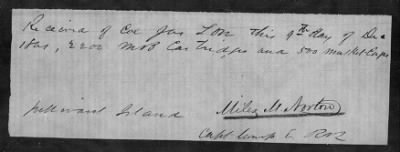 Received of Col Jas Low this 9th day of Dec
1861, 2200 M&B Cartridges and 500 Musket Caps
Island Miles M. Norton
Capt Comp E